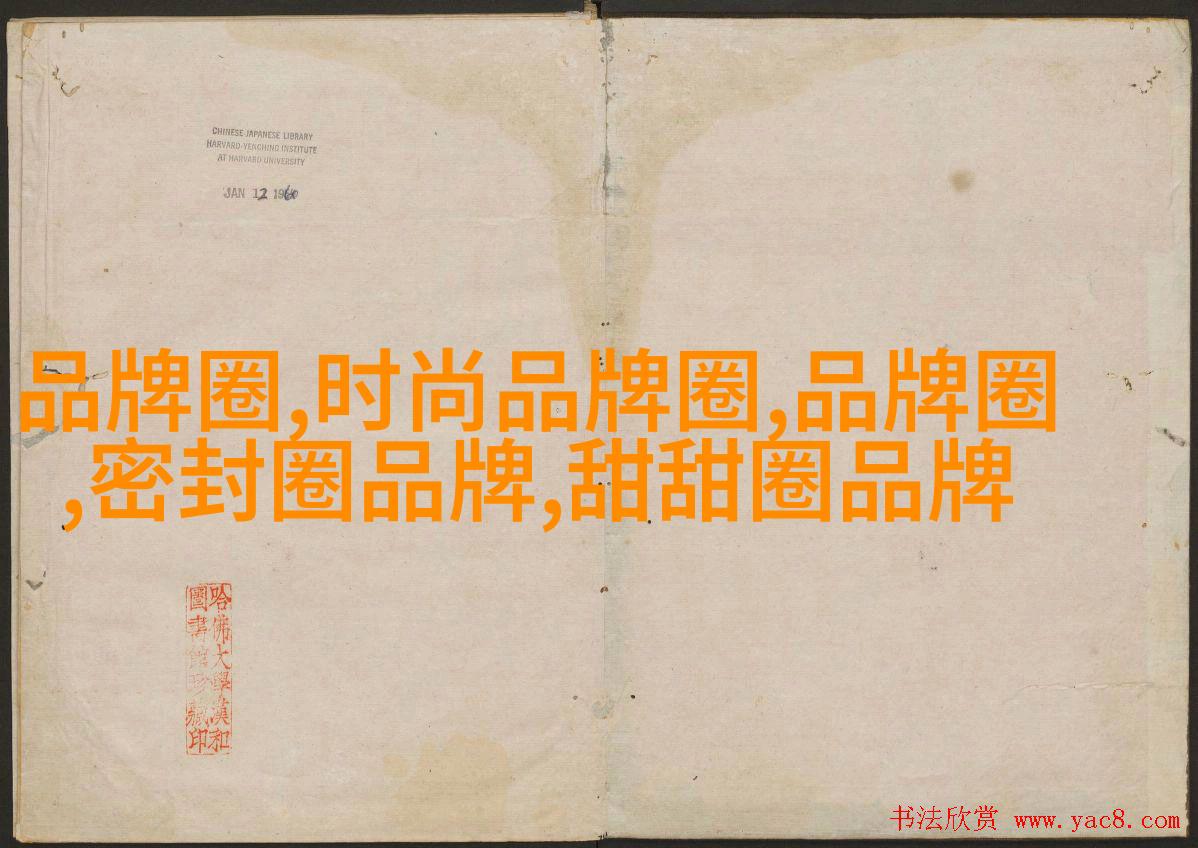 CHINESE-JAPANESE LIBRARY
HARVARD-YENCHING INSTITUTE
AT HARVARD UNIVERSITY
JAN 12 1960
品牌圈,时尚品牌圈,品牌圈
,密封圈品牌,甜甜圈品牌
哈佛大學漢和
圖書館珍藏印
书法欣赏 www.yac8.com